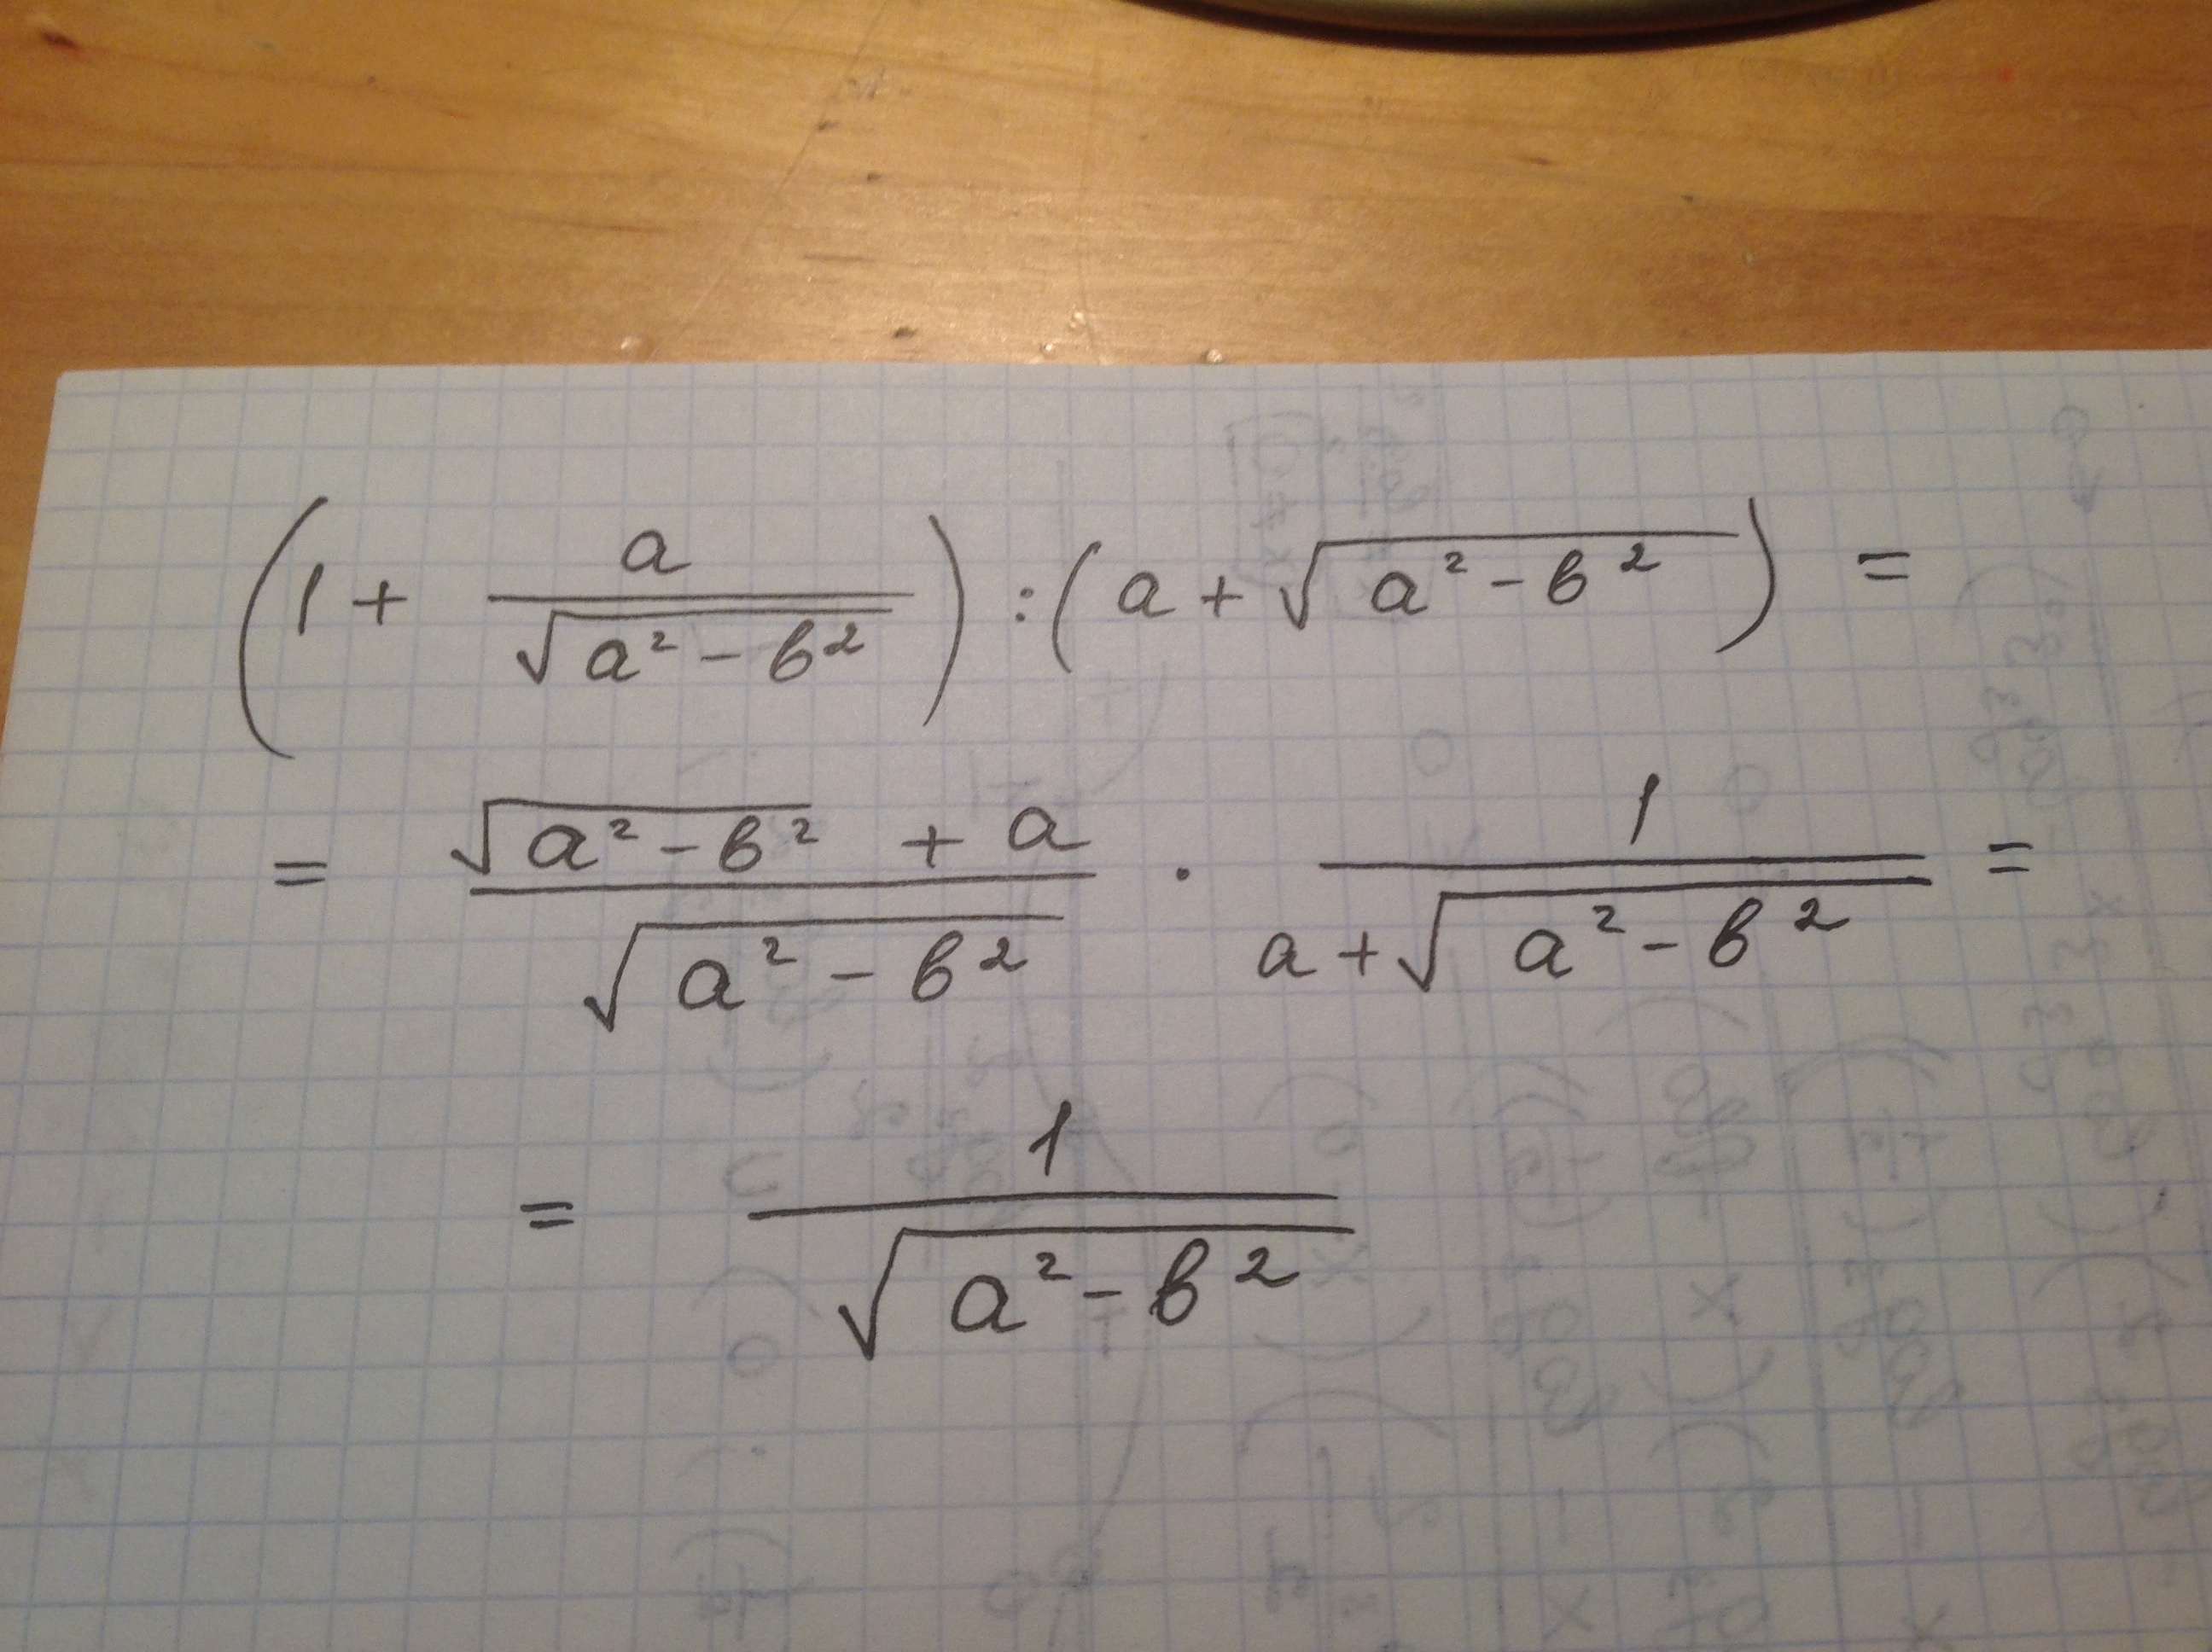 (1 + a/√(a² - b²)) : (a + √(a² - b²)) =
= (√(a² - b²) + a)/√(a² - b²) · 1/(a + √(a² - b²)) =
= 1/√(a² - b²)